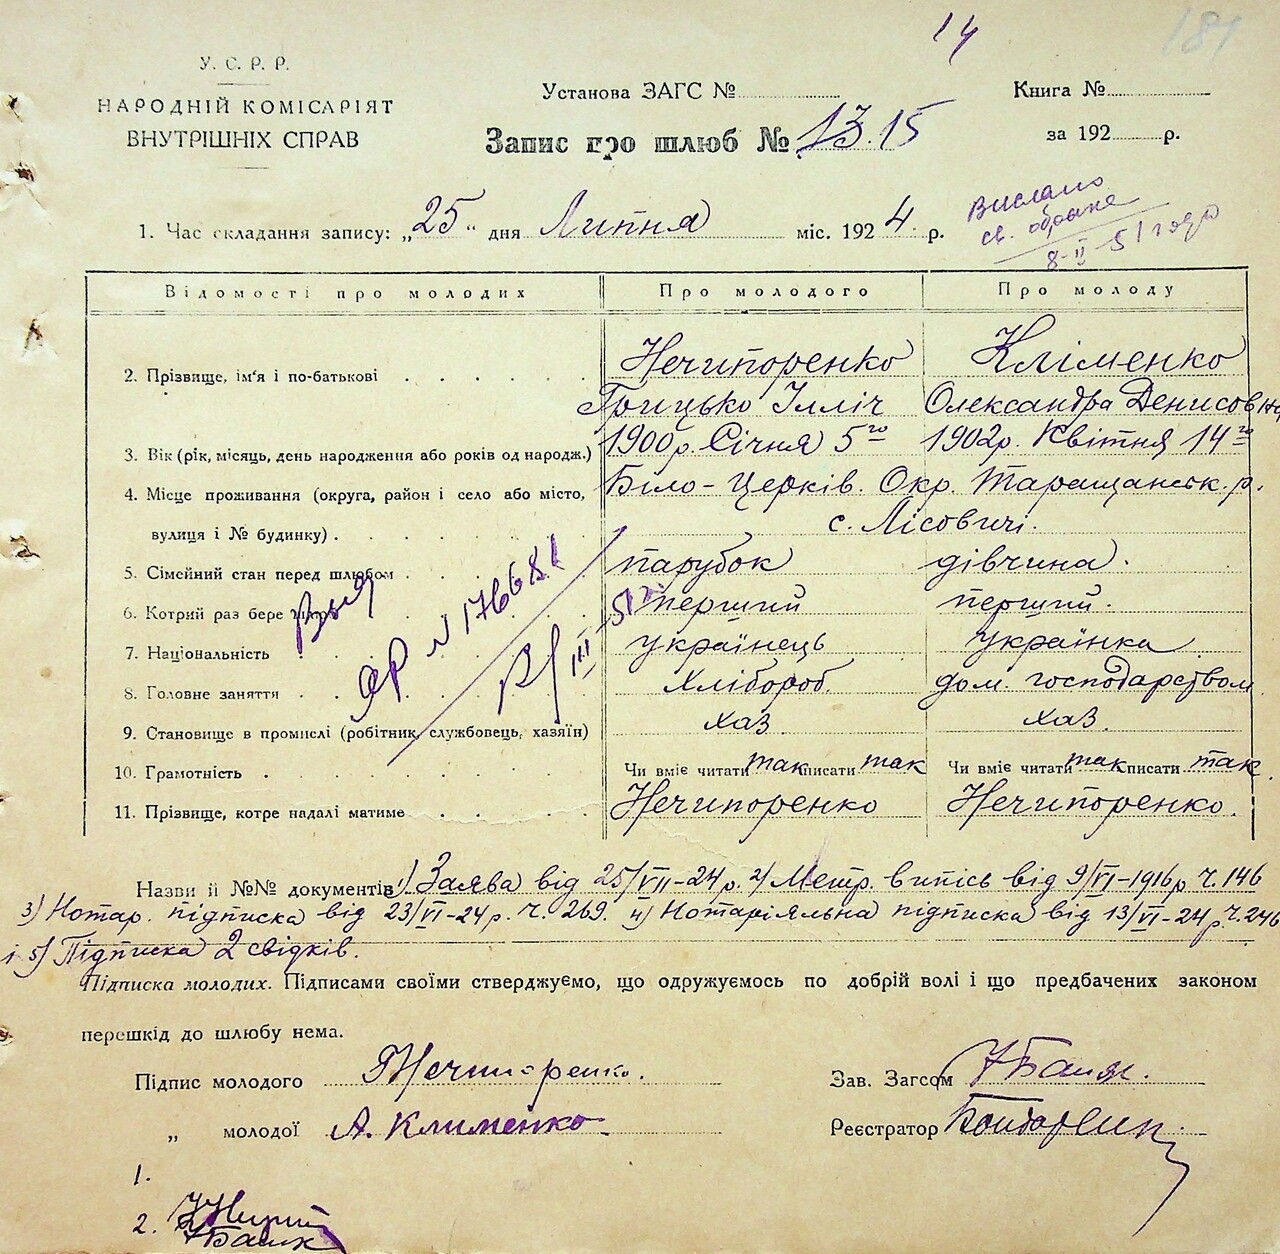 14
181
У. С. Р. Р.
НАРОДНІЙ КОМІСАРІЯТ
ВНУТРІШНІХ СПРАВ
Установа ЗАГС №
Книга №
Запис про шлюб № 13. 15
за 192 р.
1. Час складання запису: „25" дня Липня міс. 1924. р.
Вислано
св. обоим
8-II-51 года
Відомості про молодих
Про молодого
Про молоду
2. Прізвище, ім'я і по-батькові
Нечипоренко
Кліменко
Грицько Ілліч
Олександра Денисовна
3. Вік (рік, місяць, день народження або років од народж.)
1900 р. Січня 5го
1902 р. Квітня 14го
4. Місце проживання (округа, район і село або місто,
Біло-Церків. Окр. Таращанськ. р.
вулиця і № будинку)
с. Лісовичі.
5. Сімейний стан перед шлюбом
парубок
дівчина.
6. Котрий раз бере шлюб
перший
перший.
7. Національність
українець
українка
8. Головне заняття
хлібороб.
дом. господарством
9. Становище в промислі (робітник, службовець, хазяїн)
хаз
хаз.
10. Грамотність
Чи вміє читати так писати так
Чи вміє читати так писати так.
11. Прізвище, котре надалі матиме
Нечипоренко
Нечипоренко.
ЯР № 176681
III-51
Назви її №№ документів 1) Заява від 25/VII-24 р. 2) Метр. випісь від 9/VI-1916 р. ч. 146
3) Нотар. підписка від 23/VI-24 р. ч. 269. 4) Нотаріяльна підписка від 13/VI-24 р. ч. 246
і 5) Підписка 2 свідків.
Підписка молодих. Підписами своїми стверджуємо, що одружуємось по добрій волі і що предбачених законом
перешкід до шлюбу нема.
Підпис молодого Г Нечипоренко.
Зав. Загсом
„ молодої А. Клименко
Реєстратор
1.
2.